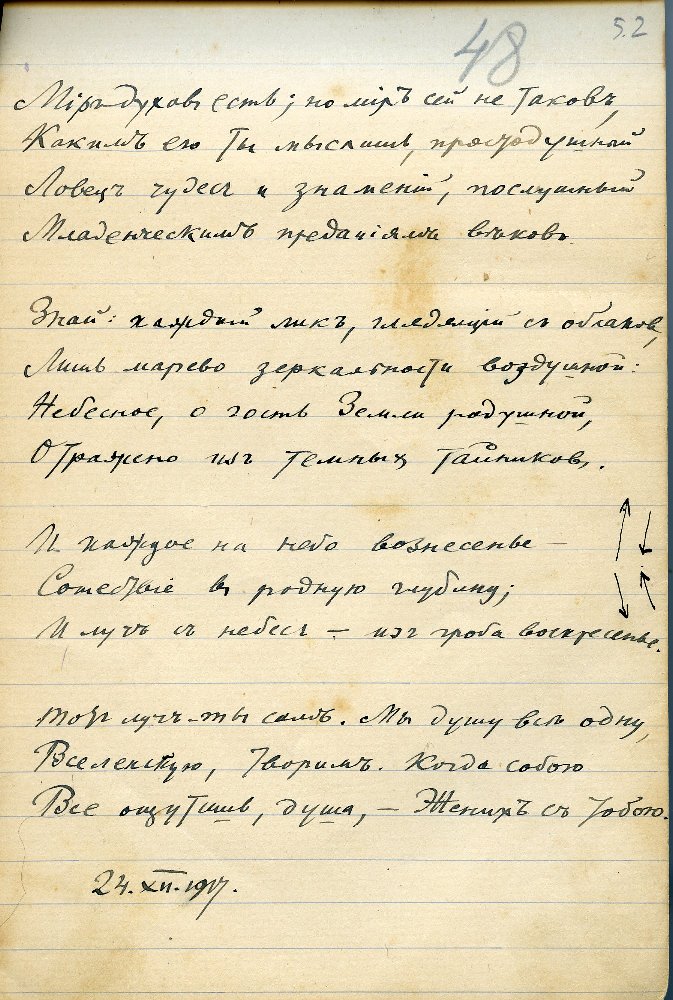 48
52
Мiръ духовъ есть; но мiръ сей не таковъ,
Какимъ его ты мыслишь, простодушный
Ловецъ чудесъ и знаменiй, послушный
Младенческимъ преданiямъ вѣковъ.
Знай: каждый ликъ, глядящiй съ облаковъ,
Лишь марево зеркальности воздушной:
Небесное, о гость Земли радушной,
Отражено изъ темныхъ тайниковъ.
И каждое на небо вознесенье –
Сошествiе въ родную глубину;
И лучъ съ небесъ – изъ гроба воскресенье.
Тотъ лучъ – ты самъ. Мы душу всѣ одну,
Вселенскую, творимъ. Когда собою
Все ощутишь, душа, – Женихъ съ тобою.
24.XII.1917.